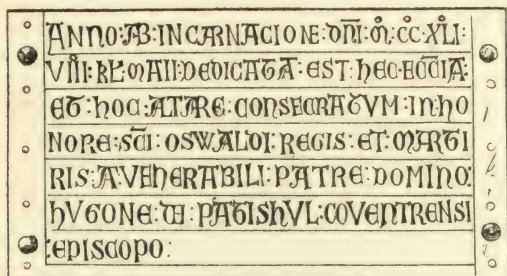 ANNO : AB : INCARNACIONE : DNI : M : CC : XLI :
VIII : KL : MAII : DEDICATA : EST : HEC : ECCIA :
ET : HOC : ALTARE : CONSECRATVM : IN : HO
NORE : SCI : OSWALDI : REGIS : ET : MARTI
RIS : A VENERABILI : PATRE : DOMINO :
HVGONE : DE : PATISHVL : COVENTRENSI
: EPISCOPO :